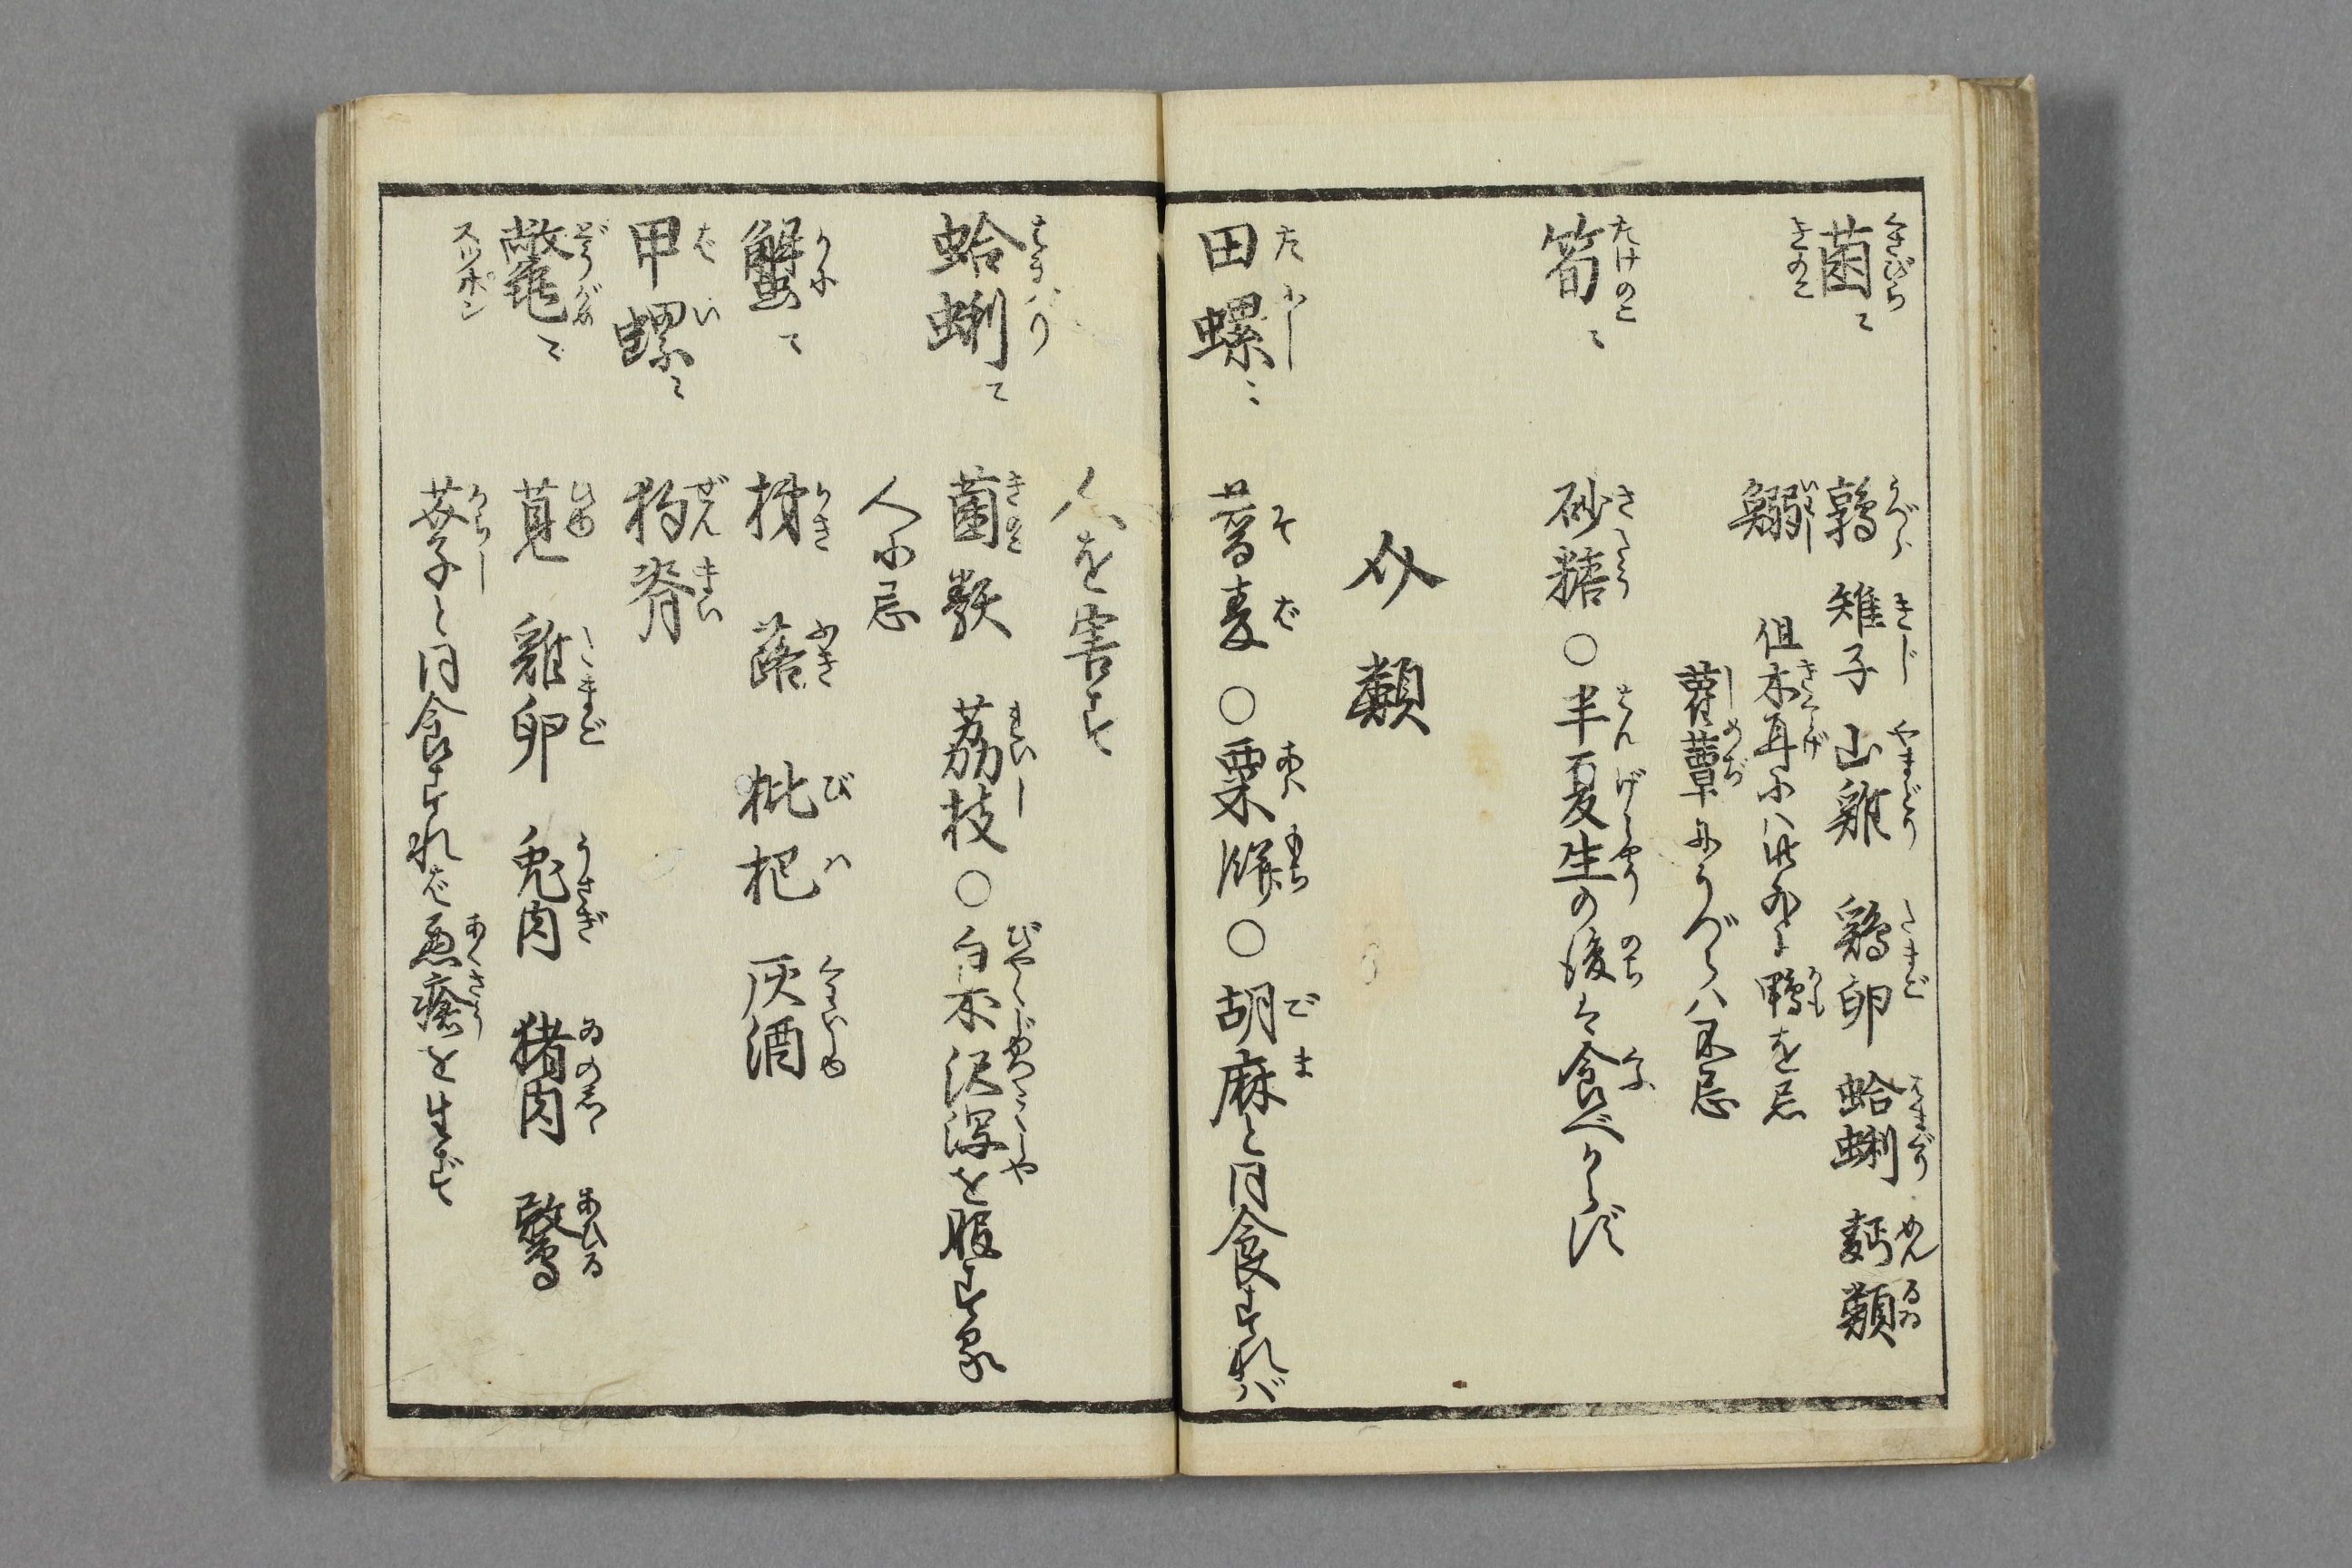 菌ニ 鶉 雉子 山雞 鶏卵 蛤蜊 麪類
くさびら うづら きじ やまどり たまご はまぐり めんるゐ
きのこ
鰯 但木耳にハ此外に鴨を忌
いわし きくらげ かも
蕈にうづらハ不忌
しめぢ
筍ニ 砂糖○半夏生の後ハ食べからず
たけのこ さとう はんげしやう のち くふ
介類
田螺ニ 蕎麦○粟餅○胡麻と同食すれバ
たにし そば あハもち ごま
人を害す
蛤蜊ニ 菌類 茘枝○白朮沢瀉を服する
はまぐり きのこ れいし びやくじゆつたくしや
人に忌
蟹ニ 柹 蕗 枇杷 灰酒
かに かき ふき びハ
甲螺ニ 狗脊
ばい ぜんまい
鼈ニ 莧 雞卵 兎肉 猪肉 鶩
どうがめ ひゆ たまご うさぎ ゐのしし あひる
スツポン
芥子と同食すれば悪瘡を生ず
からし あくさう